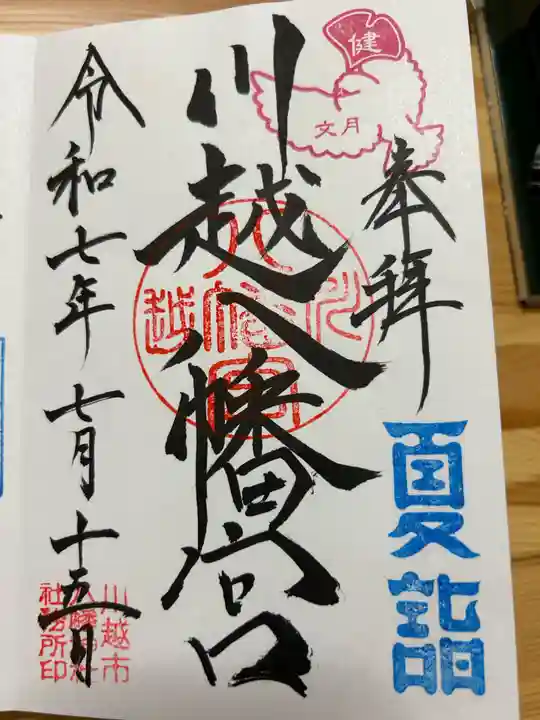 奉拝
夏詣
健
文月
川越八幡宮
令和七年七月十五日
川越市
社務所印